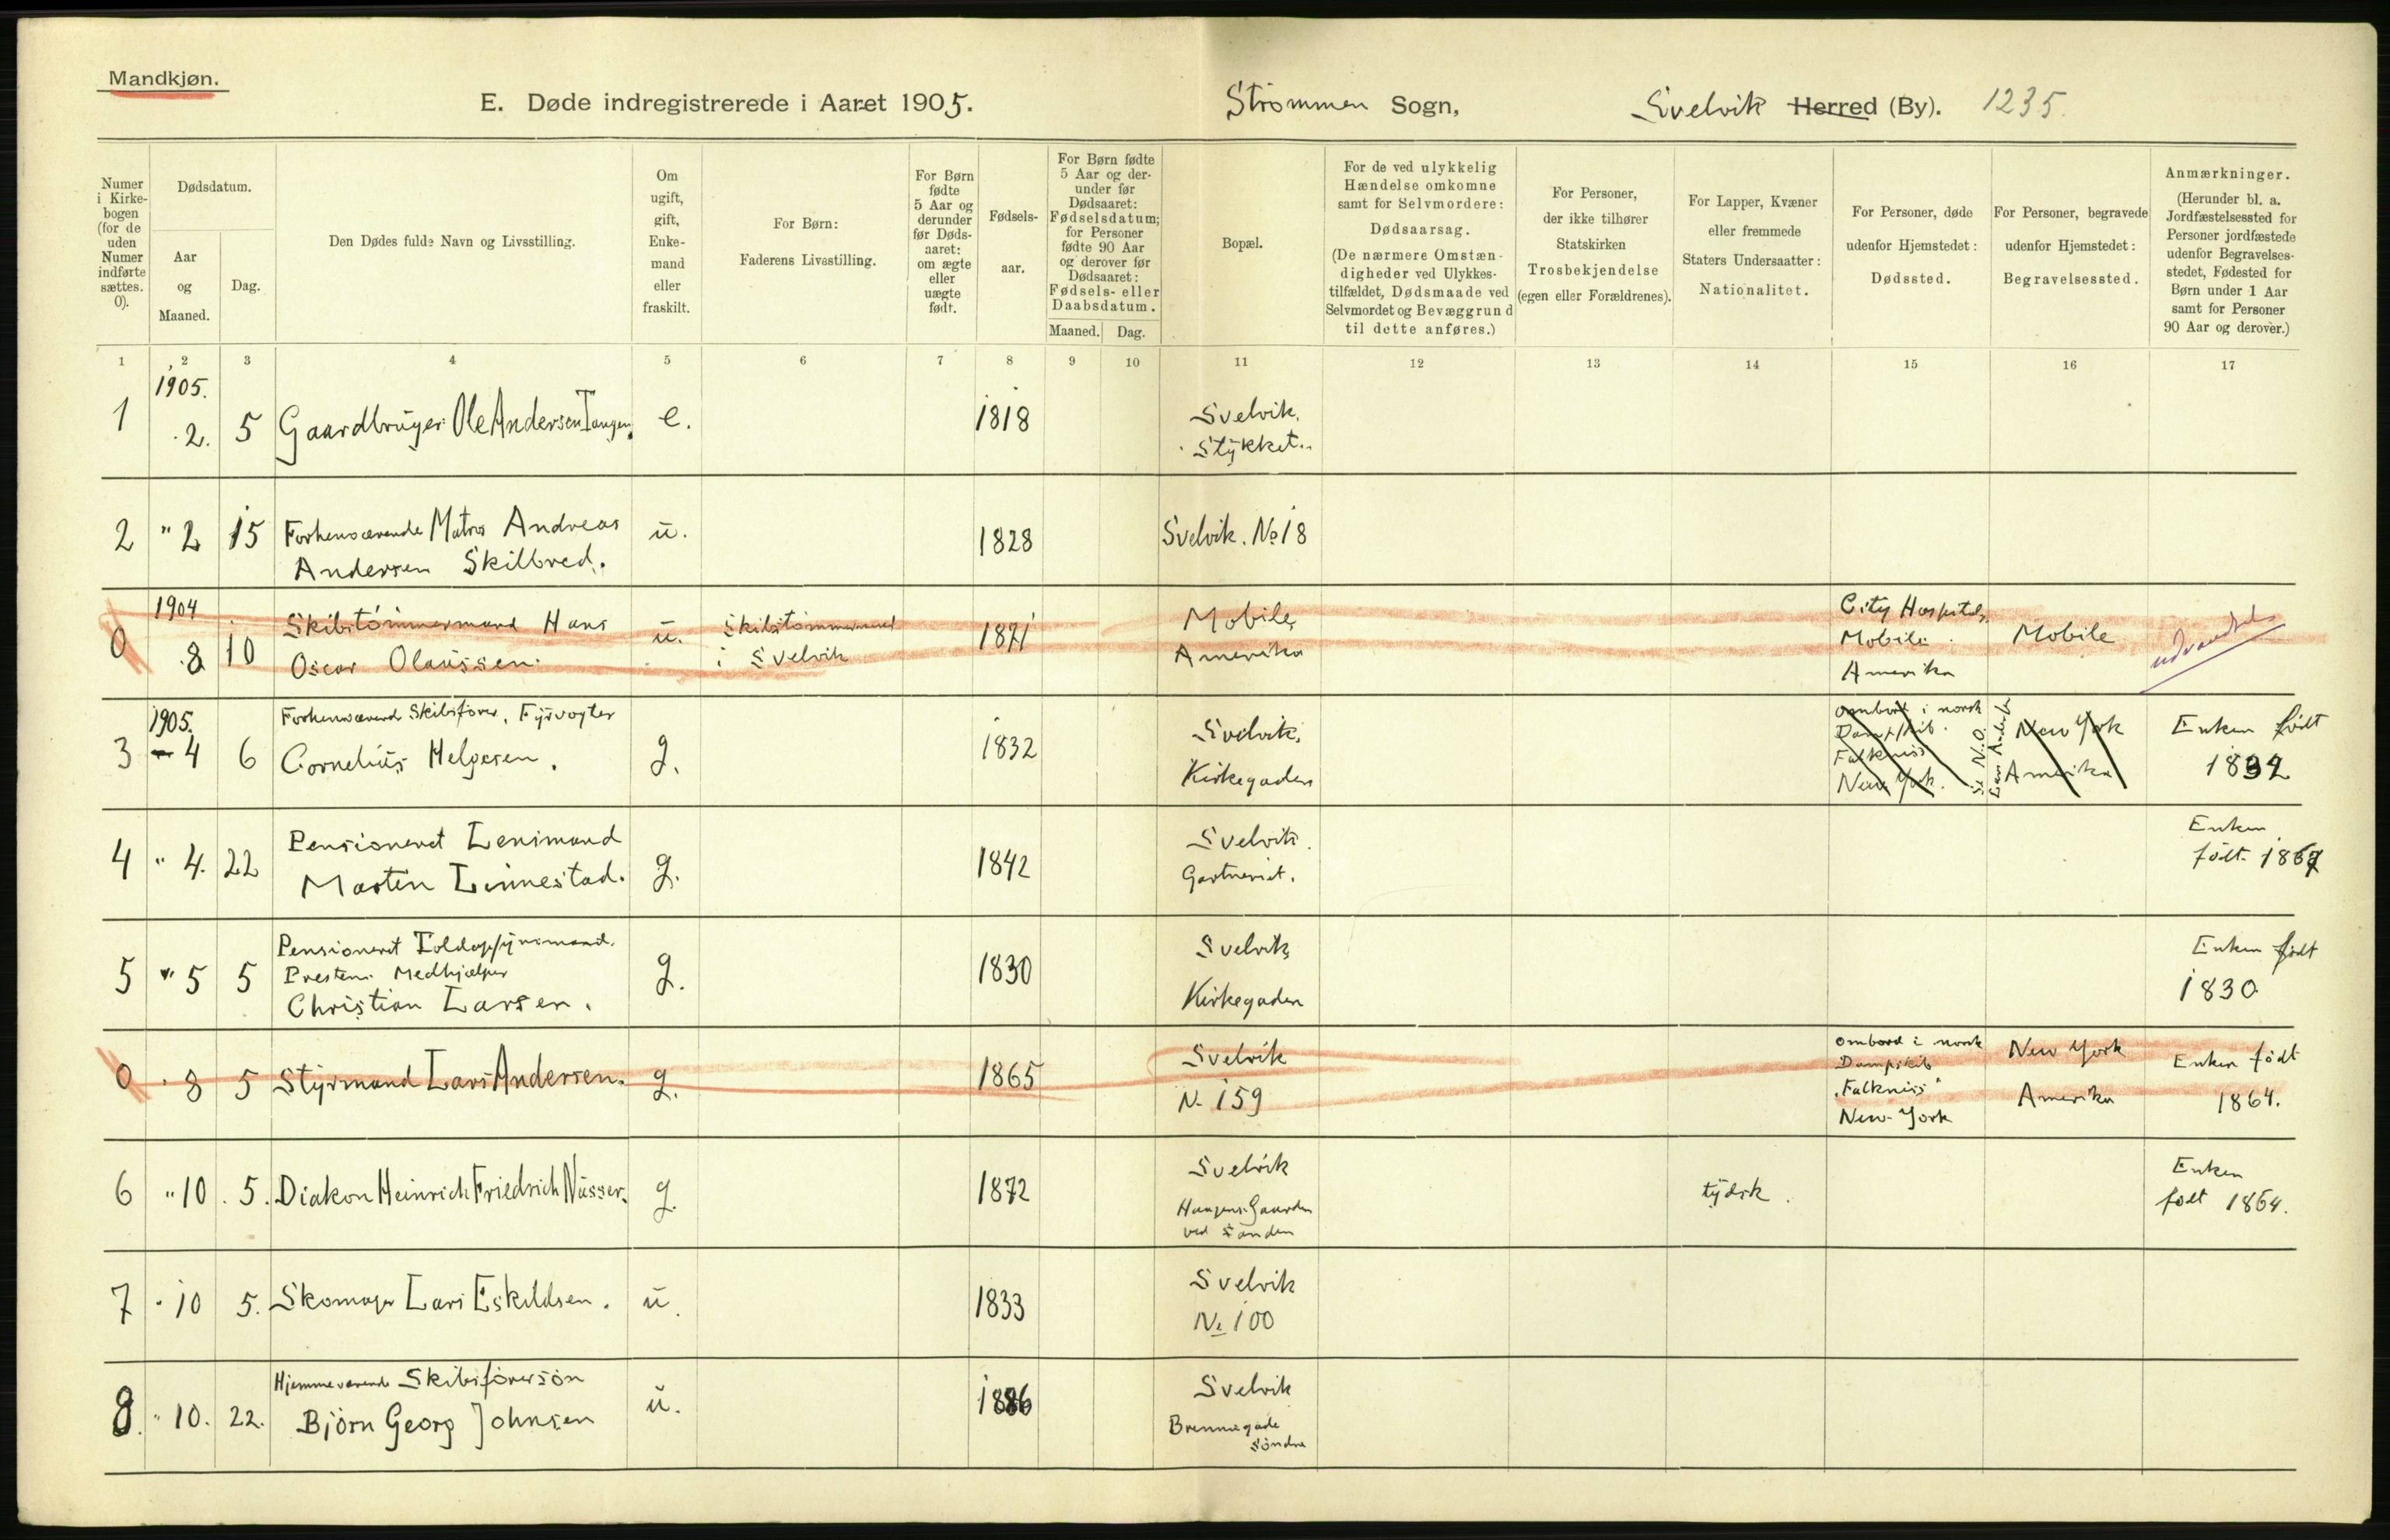 Mandkjøn.
E. Døde indregistrerede i Aaret 1905.
Strømmen Sogn,
Svelvik Herred (By). 1235.
Numer i Kirkebogen (for de uden Numer indførte sættes. 0).
Dødsdatum.
Aar og Maaned.
Dag.
Den Dødes fulde Navn og Livsstilling.
Om ugift, gift, Enkemand eller fraskilt.
For Børn: Faderens Livsstilling.
For Børn fødte 5 Aar og derunder før Dødsaaret: om ægte eller uægte født.
Fødselsaar.
For Børn fødte 5 Aar og derunder før Dødsaaret: Fødselsdatum; for Personer fødte 90 Aar og derover før Dødsaaret: Fødsels- eller Daabsdatum.
Maaned. Dag.
Bopæl.
For de ved ulykkelig Hændelse omkomne samt for Selvmordere: Dødsaarsag. (De nærmere Omstændigheder ved Ulykkestilfældet, Dødsmaade ved Selvmordet og Bevæggrund til dette anføres.)
For Personer, der ikke tilhører Statskirken Trosbekjendelse (egen eller Forældrenes).
For Lapper, Kvæner eller fremmede Staters Undersaatter: Nationalitet.
For Personer, døde udenfor Hjemstedet: Dødssted.
For Personer, begravede udenfor Hjemstedet: Begravelsessted.
Anmærkninger. (Herunder bl. a. Jordfæstelsessted for Personer jordfæstede udenfor Begravelsesstedet, Fødested for Børn under 1 Aar samt for Personer 90 Aar og derover.)
1 2 3 4 5 6 7 8 9 10 11 12 13 14 15 16 17
1905.
1 2. 5 Gaardbruger Ole Andersen Tangen. e. 1818 Svelvik.
Stykket.
2 " 2 15 Forhenværende Matros Andreas ü. 1828 Svelvik. No 18
Andersen Skilbred.
1904
0 8 10 Skibstømmermand Hans ü. Skibstømmermand 1871 Mobile, City Hospital, Mobile udvandret
Oscar Olaüssen. i Svelvik Amerika Mobile
Amerika
1905.
3 4 6 Forhenværende Skibsfører, Fyrvogter g. 1832 Svelvik, ombord i norsk New York Enken født
Cornelius Helgesen. Kirkegaden Dampskib Amerika 1832
Falkniss
New York.
4 " 4. 22 Pensioneret Lensmand g. 1842 Svelvik. Enken
Martin Linnestad. Gartneriet. født. 1867
5 " 5 5 Pensioneret Toldopsynsmand. g. 1830 Svelvik, Enken født
Prestens Medhjælper Kirkegaden 1830
Christian Larsen.
0 8 5 Styrmand Lars Andersen. g. 1865 Svelvik ombord i norsk New York Enken født
N. 159 Dampskib Amerika 1864.
"Falkniss"
New-York
6 " 10. 5. Diakon Heinrich Friedrich Nüsser. g. 1872 Svelvik tydsk. Enken
Gaarden født 1864.
ved Sanden
7 " 10 5. Skomager Lars Eskildsen. ü. 1833 Svelvik
No 100
8. " 10. 22. Hjemmeværende Skibsførersøn ü. 1886 Svelvik
Bjørn Georg Johnsen Brennegade
Søndre